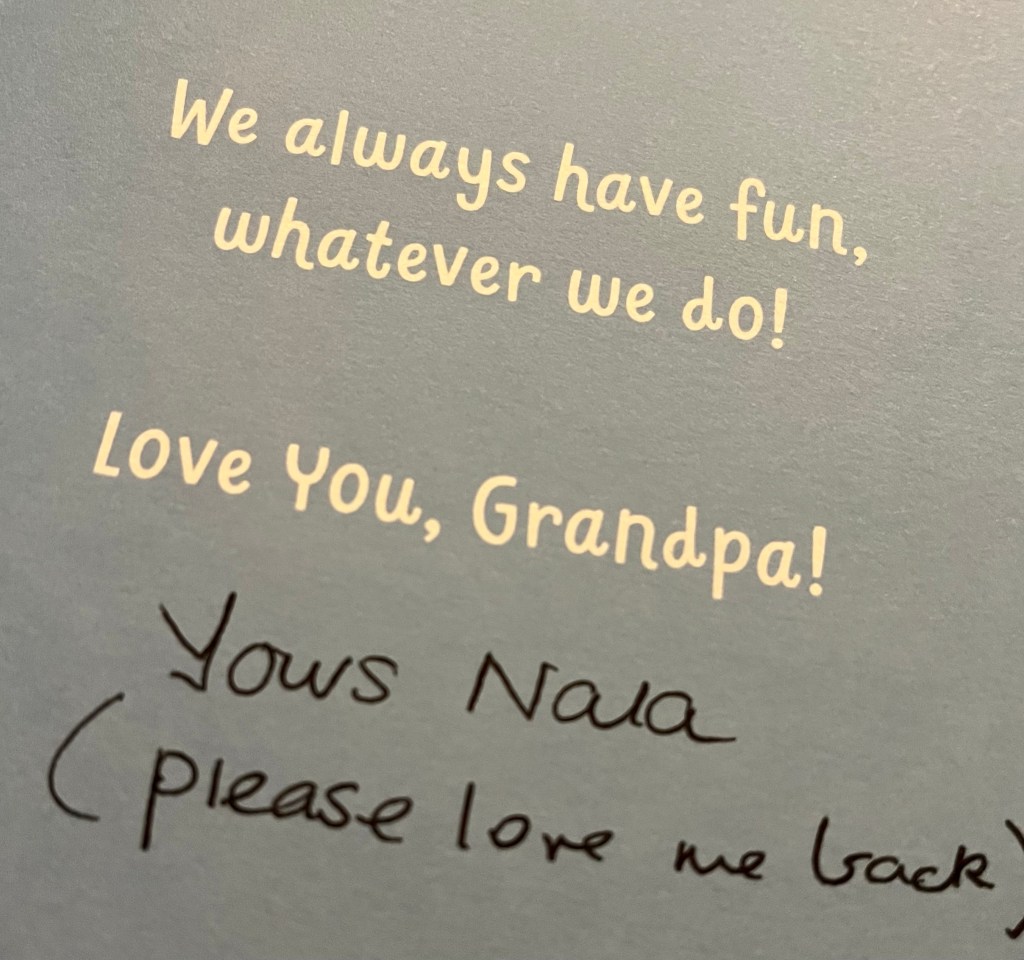 We always have fun,
whatever we do!
Love You, Grandpa!
Yours Nala
(please love me back)